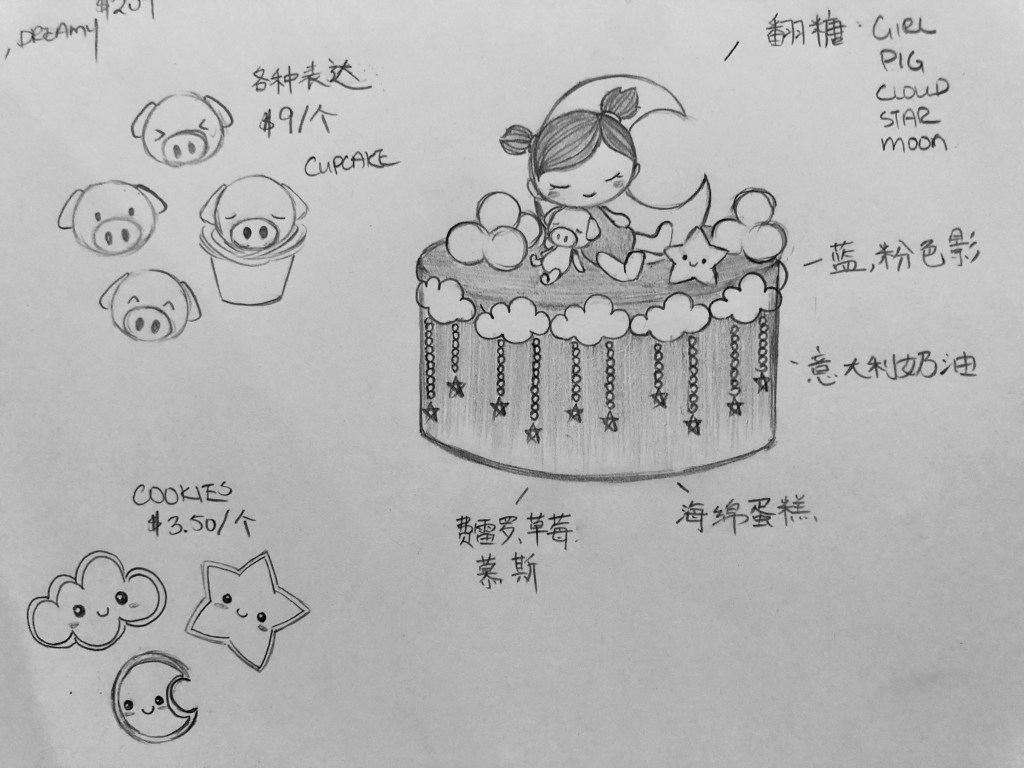 , DREAMY
各种表达
$9/个
CUPCAKE
翻糖: GIRL
PIG
CLOUD
STAR
moon
蓝,粉色影
意大利奶油
海绵蛋糕
费雷罗、草莓
慕斯
COOKIES
$3.50/个